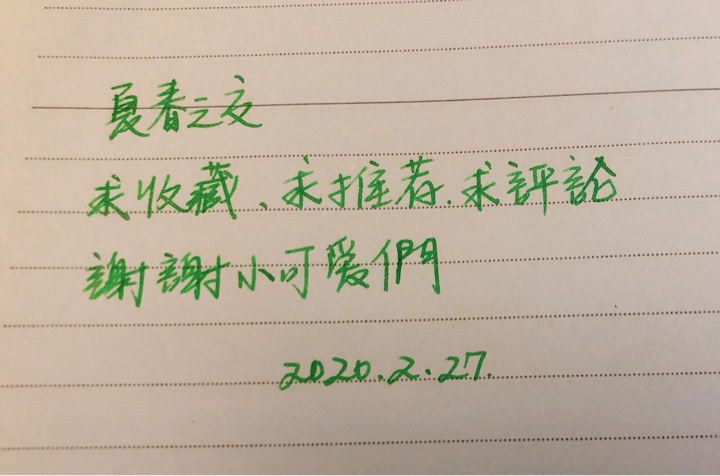 夏春之交
求收藏、求推荐.求評論
謝謝小可爱們
2020.2.27.